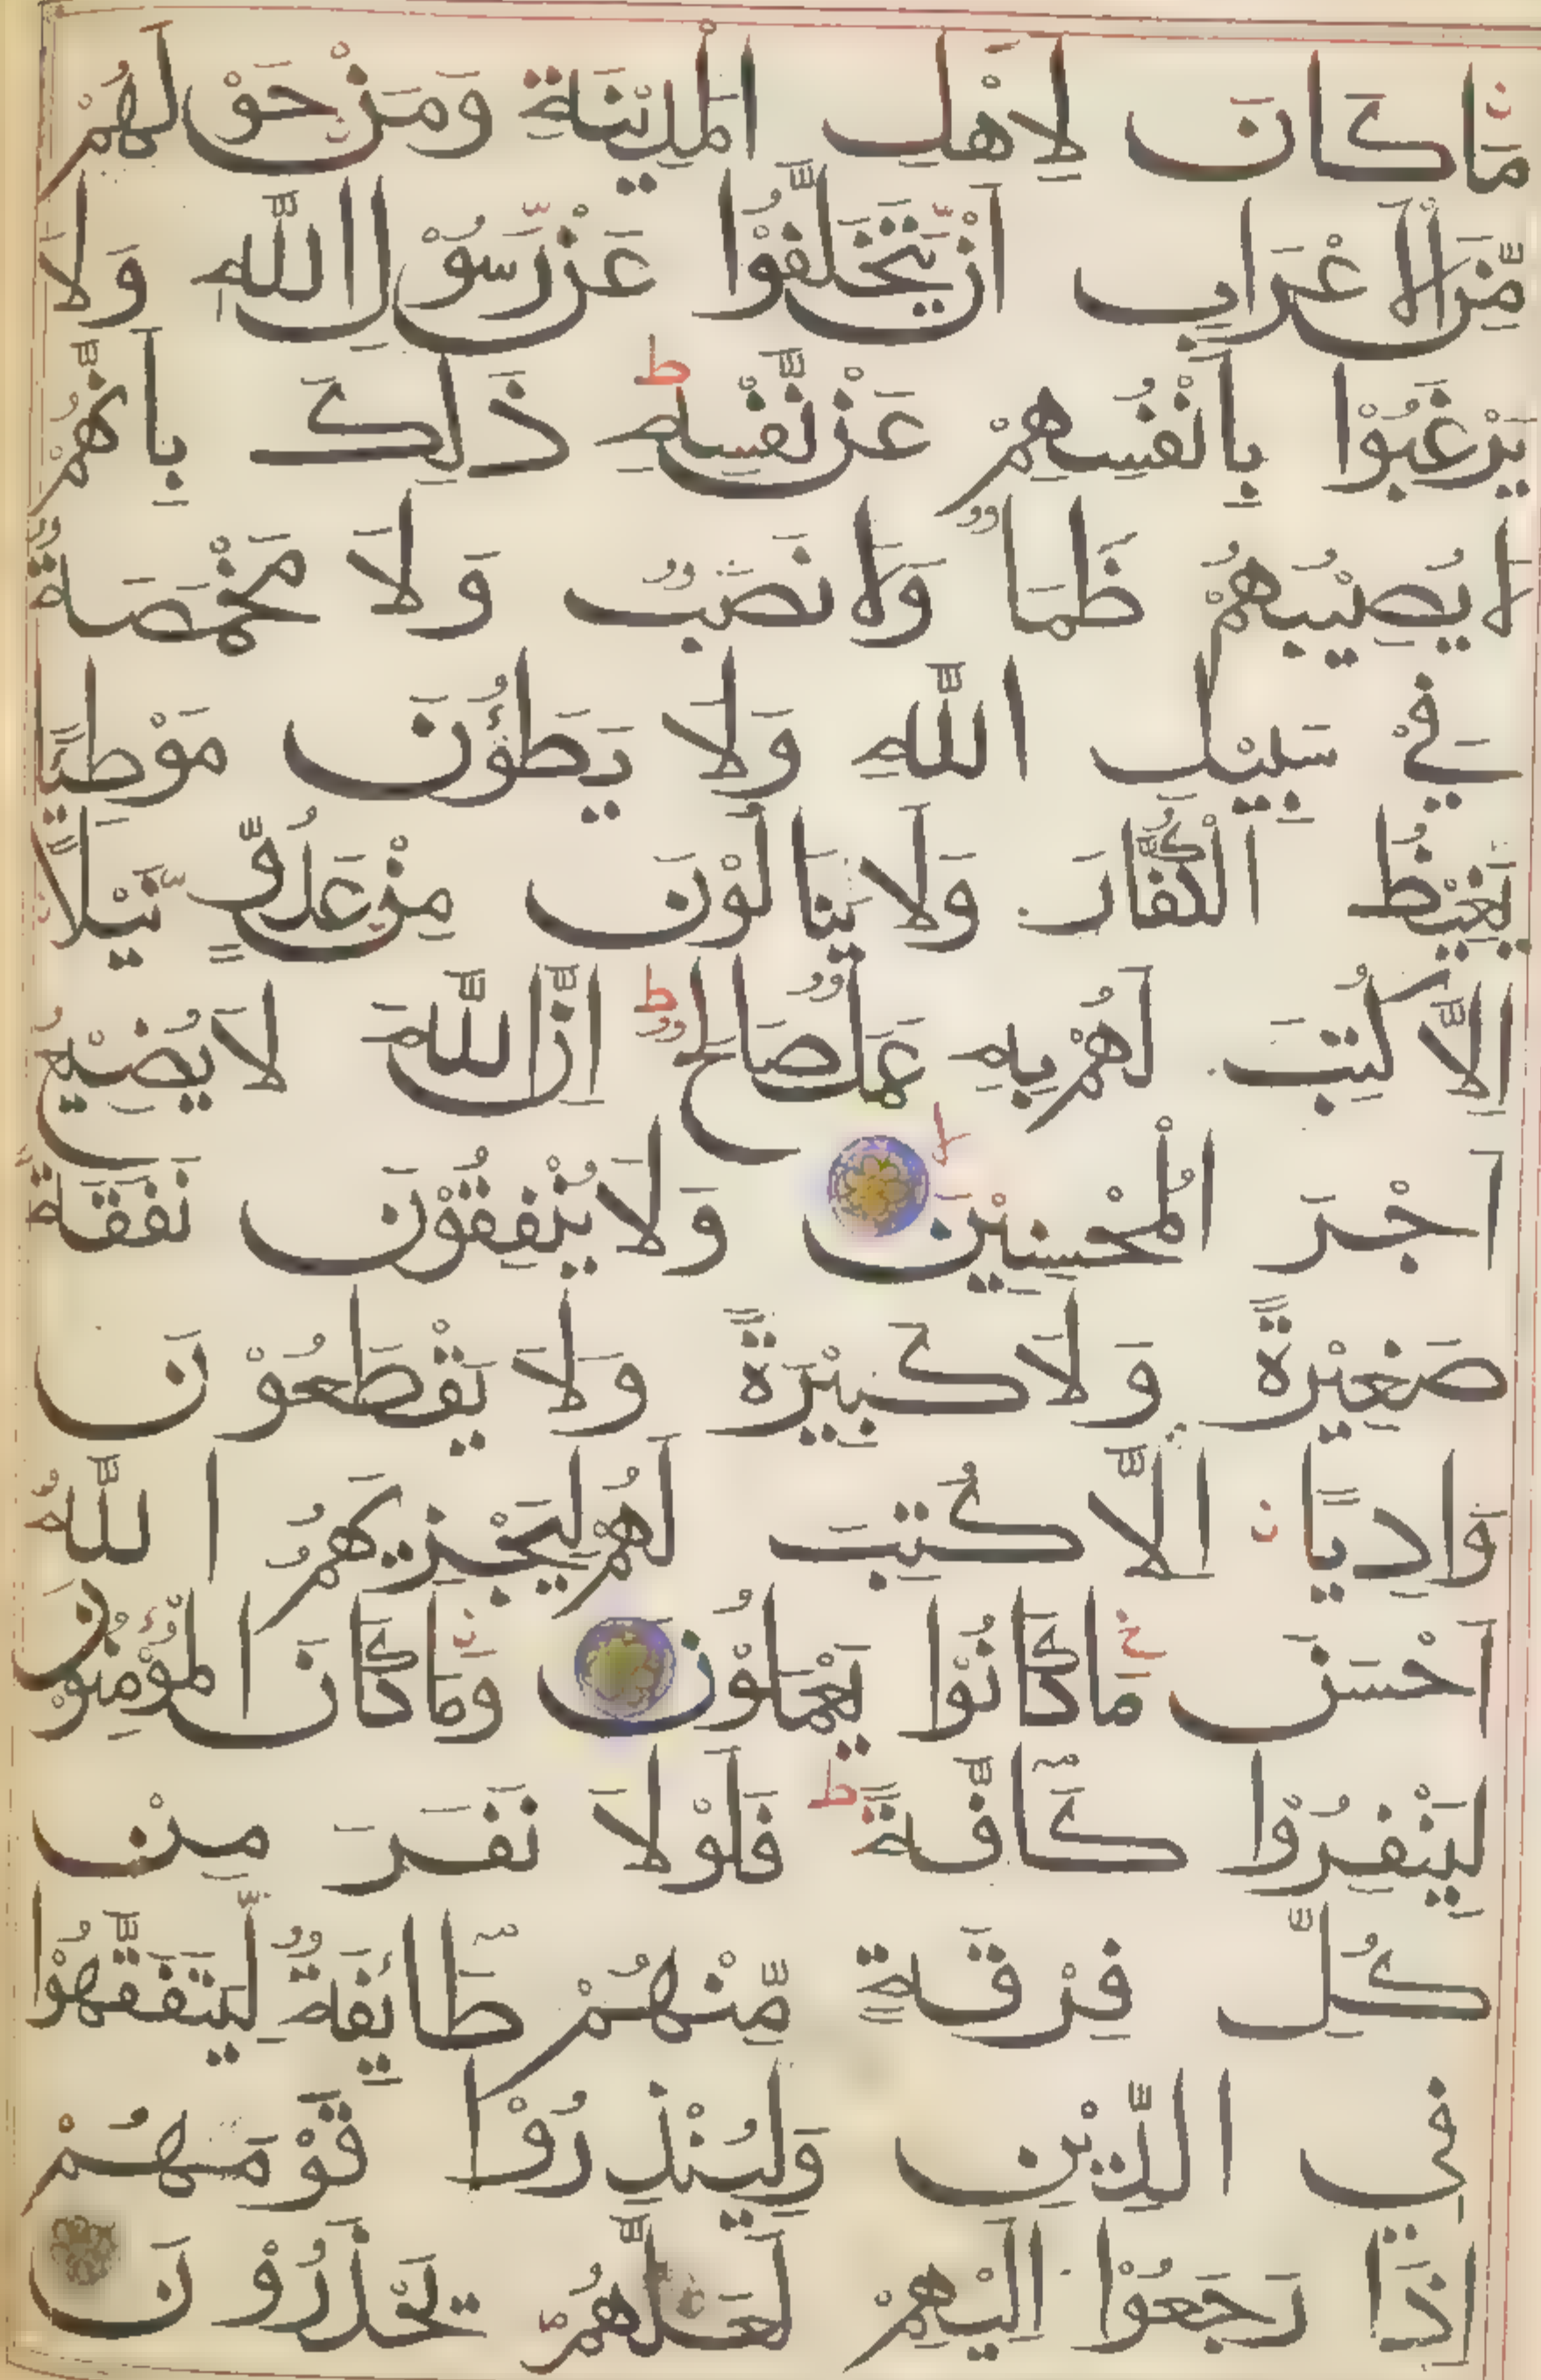 مَا كَانَ لِاَهْلِ الْمَدِيْنَةِ وَمَنْ حَوْلَهُمْ
مِّنَ الْاَعْرَابِ اَنْ يَّتَخَلَّفُوْا عَنْ رَّسُوْلِ اللّٰهِ وَلَا
يَرْغَبُوْا بِاَنْفُسِهِمْ عَنْ نَّفْسِهٖ ط ذٰلِكَ بِاَنَّهُمْ
لَا يُصِيْبُهُمْ ظَمَاٌ وَلَا نَصَبٌ وَلَا مَخْمَصَةٌ
فِيْ سَبِيْلِ اللّٰهِ وَلَا يَطَئُوْنَ مَوْطِيًا
يَغِيْظُ الْكُفَّارَ وَلَا يَنَالُوْنَ مِنْ عَدُوٍّ نَّيْلًا
اِلَّا كُتِبَ لَهُمْ بِهٖ عَمَلٌ صَالِحٌ ط اِنَّ اللّٰهَ لَا يُضِيْعُ
اَجْرَ الْمُحْسِنِيْنَ لا وَلَا يُنْفِقُوْنَ نَفَقَةً
صَغِيْرَةً وَلَا كَبِيْرَةً وَلَا يَقْطَعُوْنَ
وَادِيًا اِلَّا كُتِبَ لَهُمْ لِيَجْزِيَهُمُ اللّٰهُ
اَحْسَنَ مَا كَانُوْا يَعْمَلُوْنَ وَمَا كَانَ الْمُؤْمِنُوْنَ
لِيَنْفِرُوْا كَآفَّةً ط فَلَوْلَا نَفَرَ مِنْ
كُلِّ فِرْقَةٍ مِّنْهُمْ طَآئِفَةٌ لِّيَتَفَقَّهُوْا
فِي الدِّيْنِ وَلِيُنْذِرُوْا قَوْمَهُمْ
اِذَا رَجَعُوْا اِلَيْهِمْ لَعَلَّهُمْ يَحْذَرُوْنَ